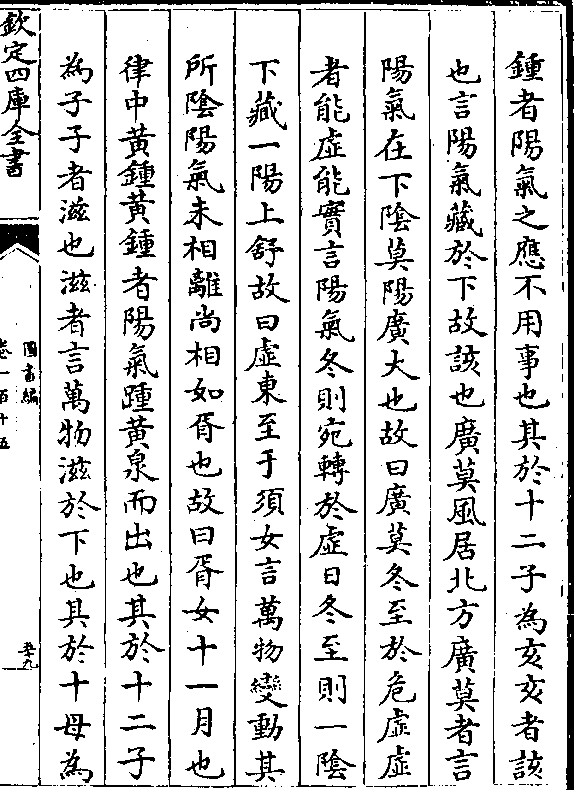 鍾者陽氣之應不用事也其於十二子為亥亥者該
也言陽氣藏於下故該也廣莫風居北方廣莫者言
陽氣在下陰莫陽廣大也故曰廣莫冬至於危虛虛
者能虛能實言陽氣冬則宛轉於虛日冬至則一陰
下藏一陽上舒故曰虛東至于須女言萬物變動其
所陰陽氣未相離尚相如胥也故曰胥女十一月也
律中黃鍾黃鍾者陽氣踵黃泉而出也其於十二子
為子子者滋也滋者言萬物滋於下也其於十母為
欽定四庫全書
圖書編
卷一百十五